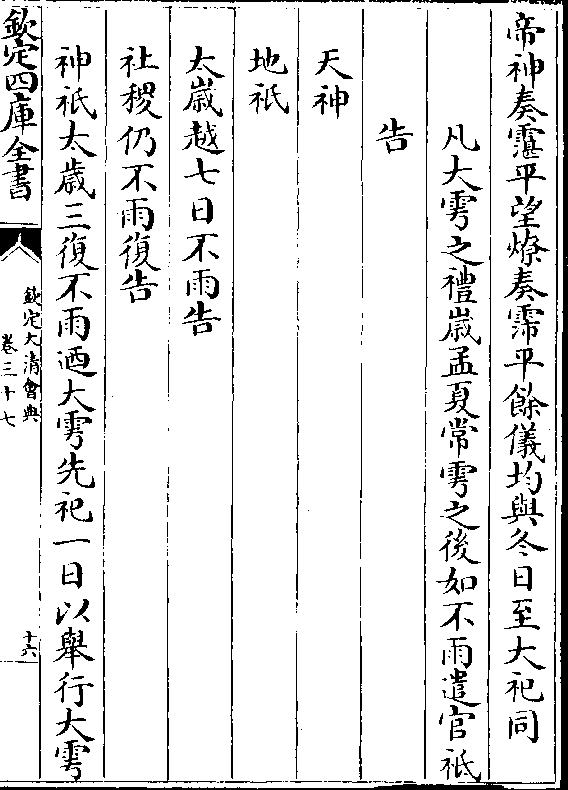 帝神奏靈平望燎奏霈平餘儀均與冬日至大祀同
凡大雩之禮嵗孟夏常雩之後如不雨遣官祇
告
天神
地祇
太嵗越七日不雨告
社稷仍不雨復告
神祇太歳三復不雨迺大雩先祀一日以舉行大雩
欽定四庫全書
欽定大清會典
卷三十七
十六